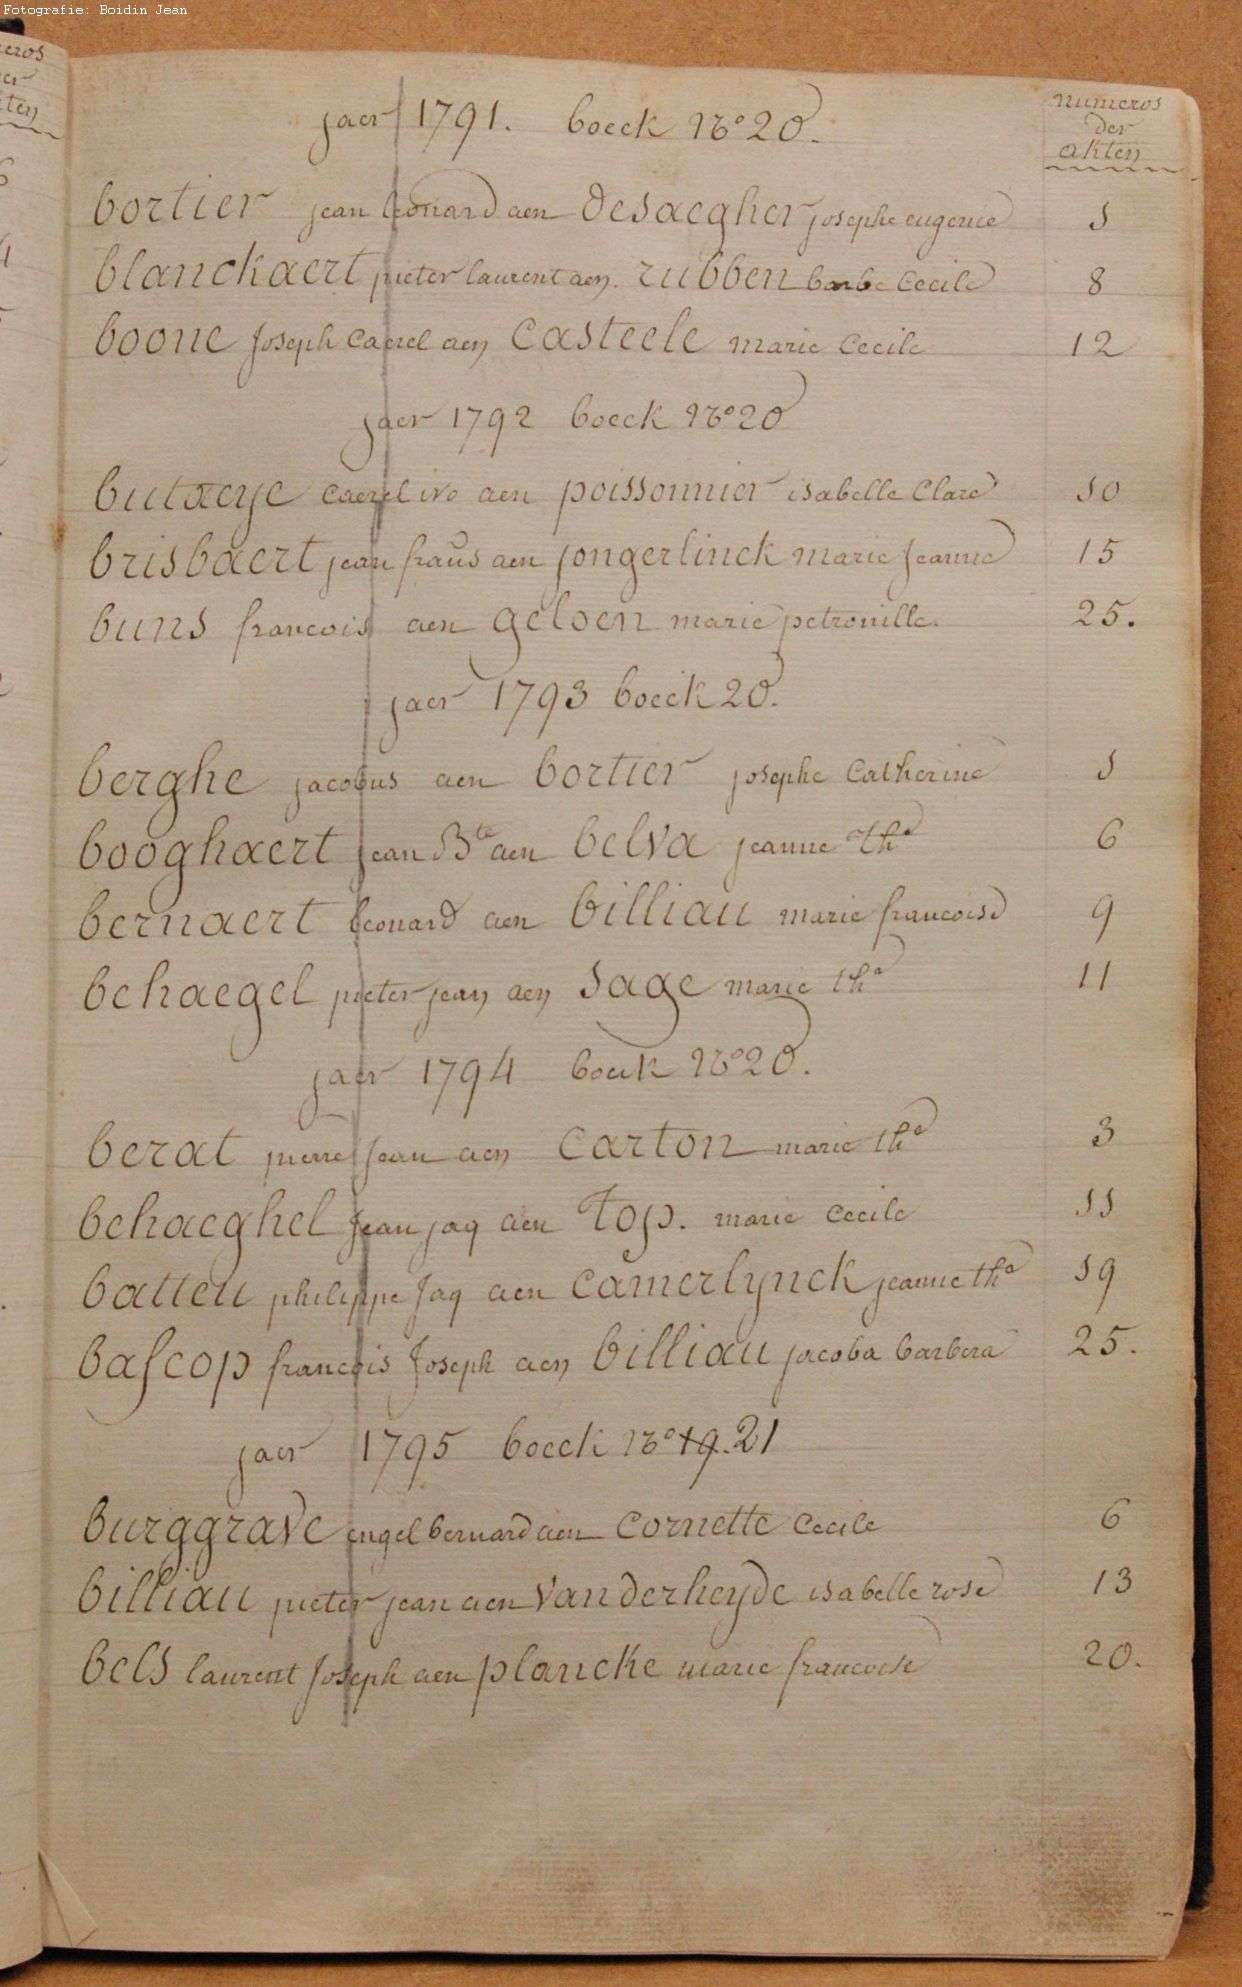 Fotografie: Boidin Jean
numeros
der
akten
jaer 1791. boeck No 20.
bortier jean leonard aen desaegher josephe eugenie 1
blanckaert pieter laurent aen. rubben barbe Cecile 8
boone Joseph Caerel aen Casteele marie Cecile 12
jaer 1792 boeck No 20
butaeye Caerel ivo aen poissonnier isabelle Clare 10
brisbaert jean fraus aen jongerlinck marie Jeanne 15
buns francois aen geloen marie petronille. 25.
jaer 1793 boeck 20.
berghe jacobus aen bortier josephe Catherine 1
booghaert jean Bte aen belva jeanne tha 6
bernaert leonard aen billiau marie francoise 9
behaegel pieter jean aen sage marie tha 11
jaer 1794 boeck No 20.
berat pierre Jean aen Carton marie tha 3
behaeghel Jean jaq aen Top. marie Cecile 11
batteu philippe Jaq aen Camerlynck jeanne tha 19
bascop francois Joseph aen billiau jacoba barbera 25.
jaer 1795 boeck No 19. 21
burggrave engel bernard aen Cornette Cecile 6
billiau pieter jean aen vanderheyde isabelle rose 13
bels laurent Joseph aen plancke marie francoise 20.